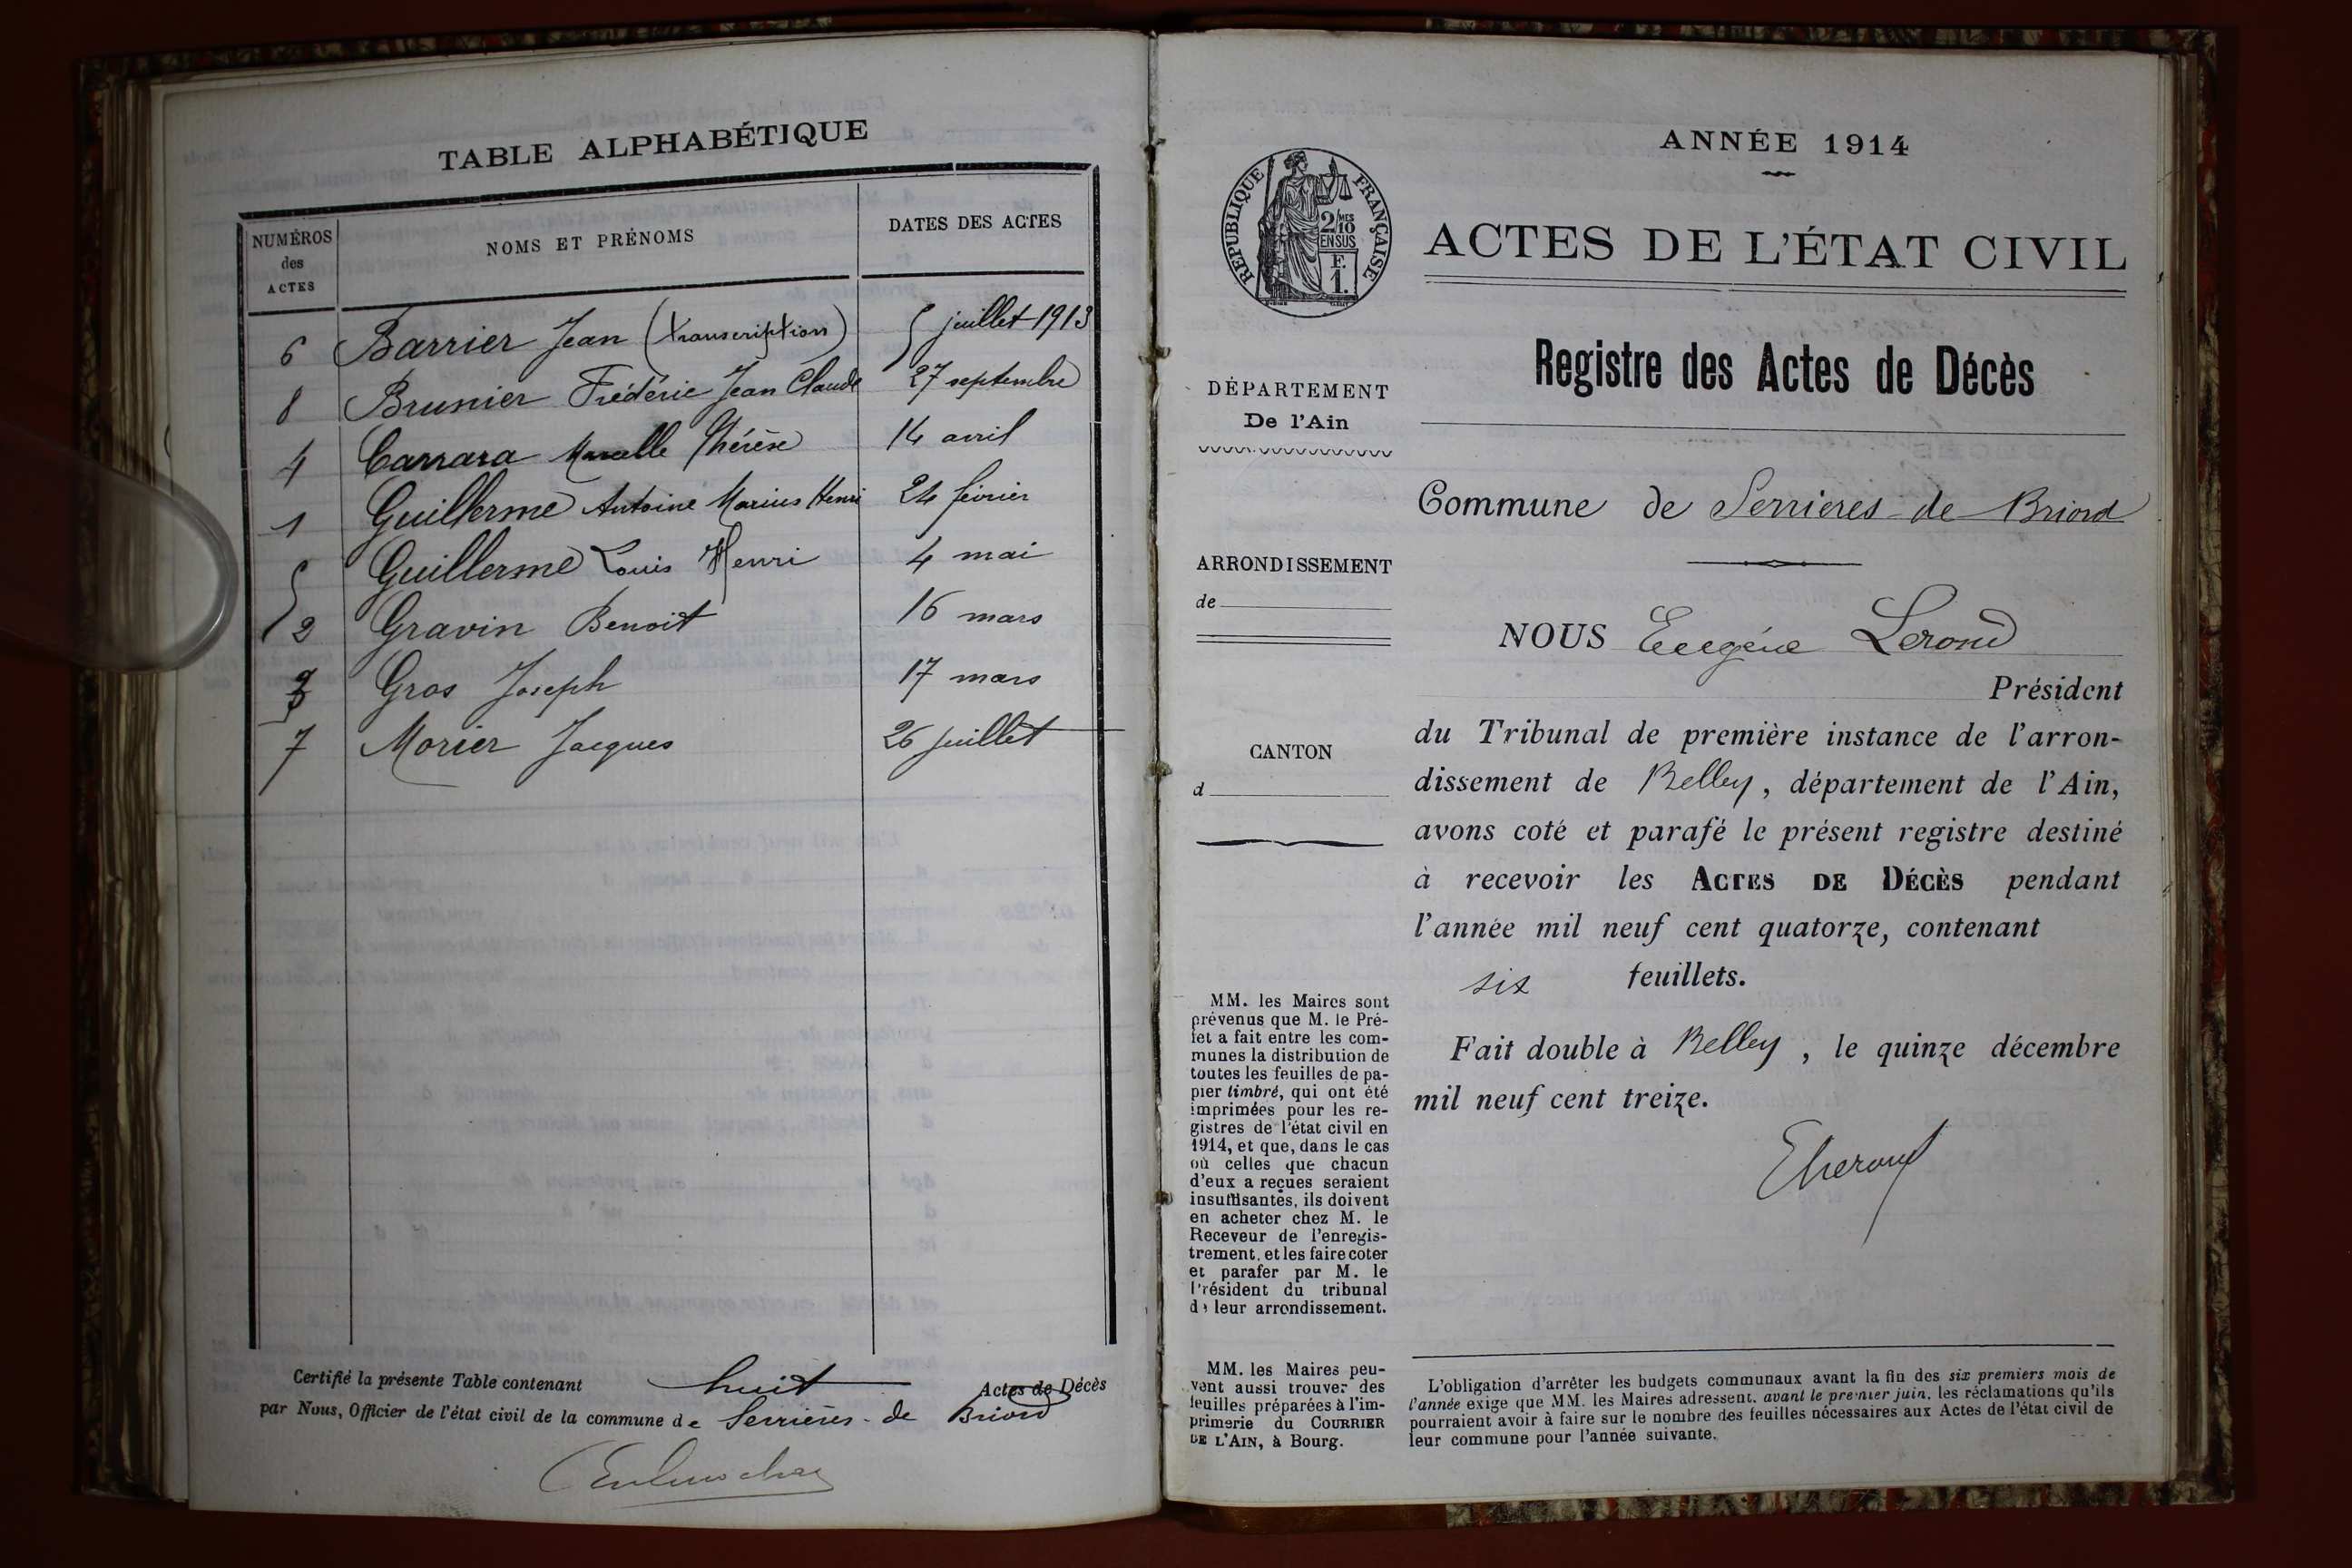 TABLE ALPHABÉTIQUE
NUMÉROS des ACTES NOMS ET PRÉNOMS DATES DES ACTES
6 Barrier Jean (transcription) 5 juillet 1913
8 Brunier Frédéric Jean Claude 27 septembre
4 Carrara Marcelle Thérèse 14 avril
1 Guillerme Antoine Marius Henri 24 février
5 Guillerme Louis Henri 4 mai
2 Gravin Benoit 16 mars
3 Gros Joseph 17 mars
7 Morier Jacques 26 juillet
Certifié la présente Table contenant huit Actes de Décès
par Nous, Officier de l'état civil de la commune de Serrières-de Briord
ANNÉE 1914
RÉPUBLIQUE FRANÇAISE
2/10 MES
EN SUS
F.
1.
ACTES DE L'ÉTAT CIVIL
Registre des Actes de Décès
DÉPARTEMENT
De l'Ain
Commune de Serrieres-de-Briord
ARRONDISSEMENT
de
CANTON
d
NOUS Eugéne Lerond
Président
du Tribunal de première instance de l'arron-
dissement de Belley, département de l'Ain,
avons coté et parafé le présent registre destiné
à recevoir les ACTES DE DÉCÈS pendant
l'année mil neuf cent quatorze, contenant
six feuillets.
Fait double à Belley, le quinze décembre
mil neuf cent treize.
MM. les Maires sont
prévenus que M. le Pré-
fet a fait entre les com-
munes la distribution de
toutes les feuilles de pa-
pier timbré, qui ont été
imprimées pour les re-
gistres de l'état civil en
1914, et que, dans le cas
où celles que chacun
d'eux a reçues seraient
insuffisantes, ils doivent
en acheter chez M. le
Receveur de l'enregis-
trement, et les faire coter
et parafer par M. le
Président du tribunal
de leur arrondissement.
MM. les Maires peu-
vent aussi trouver des
feuilles préparées à l'im-
primerie du COURRIER
DE L'AIN, à Bourg.
L'obligation d'arrêter les budgets communaux avant la fin des six premiers mois de
l'année exige que MM. les Maires adressent, avant le premier juin, les réclamations qu'ils
pourraient avoir à faire sur le nombre des feuilles nécessaires aux Actes de l'état civil de
leur commune pour l'année suivante.